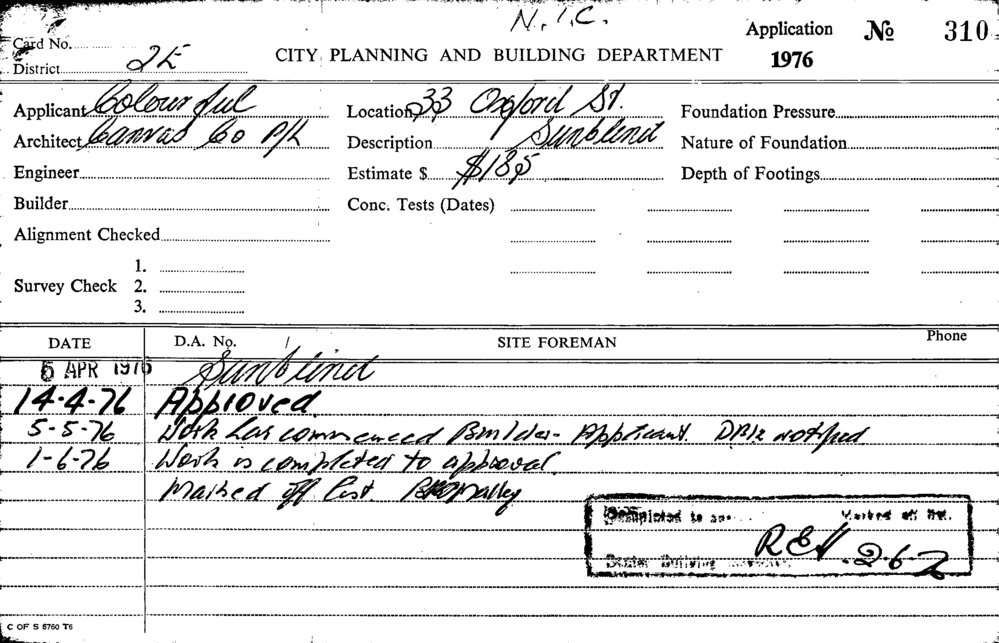 N.I.C.
Card No.
Application No 310
District 2E
CITY PLANNING AND BUILDING DEPARTMENT
1976
Applicant Colourful
Location 33 Oxford St.
Foundation Pressure
Architect Canvas Co P/L
Description Sunblind
Nature of Foundation
Engineer
Estimate $ $185
Depth of Footings
Builder
Conc. Tests (Dates)
Alignment Checked
Survey Check
1.
2.
3.
DATE
D.A. No.
SITE FOREMAN
Phone
6 APR 1976 Sunblind
14.4.76 Approved.
5-5-76 Work has commenced Builder- Applicant. notified
1-6-76 Work is completed to approval.
Marked off List O'Malley
Completed to Marked off list.
Building
2.6.76
C OF S 6760 T6